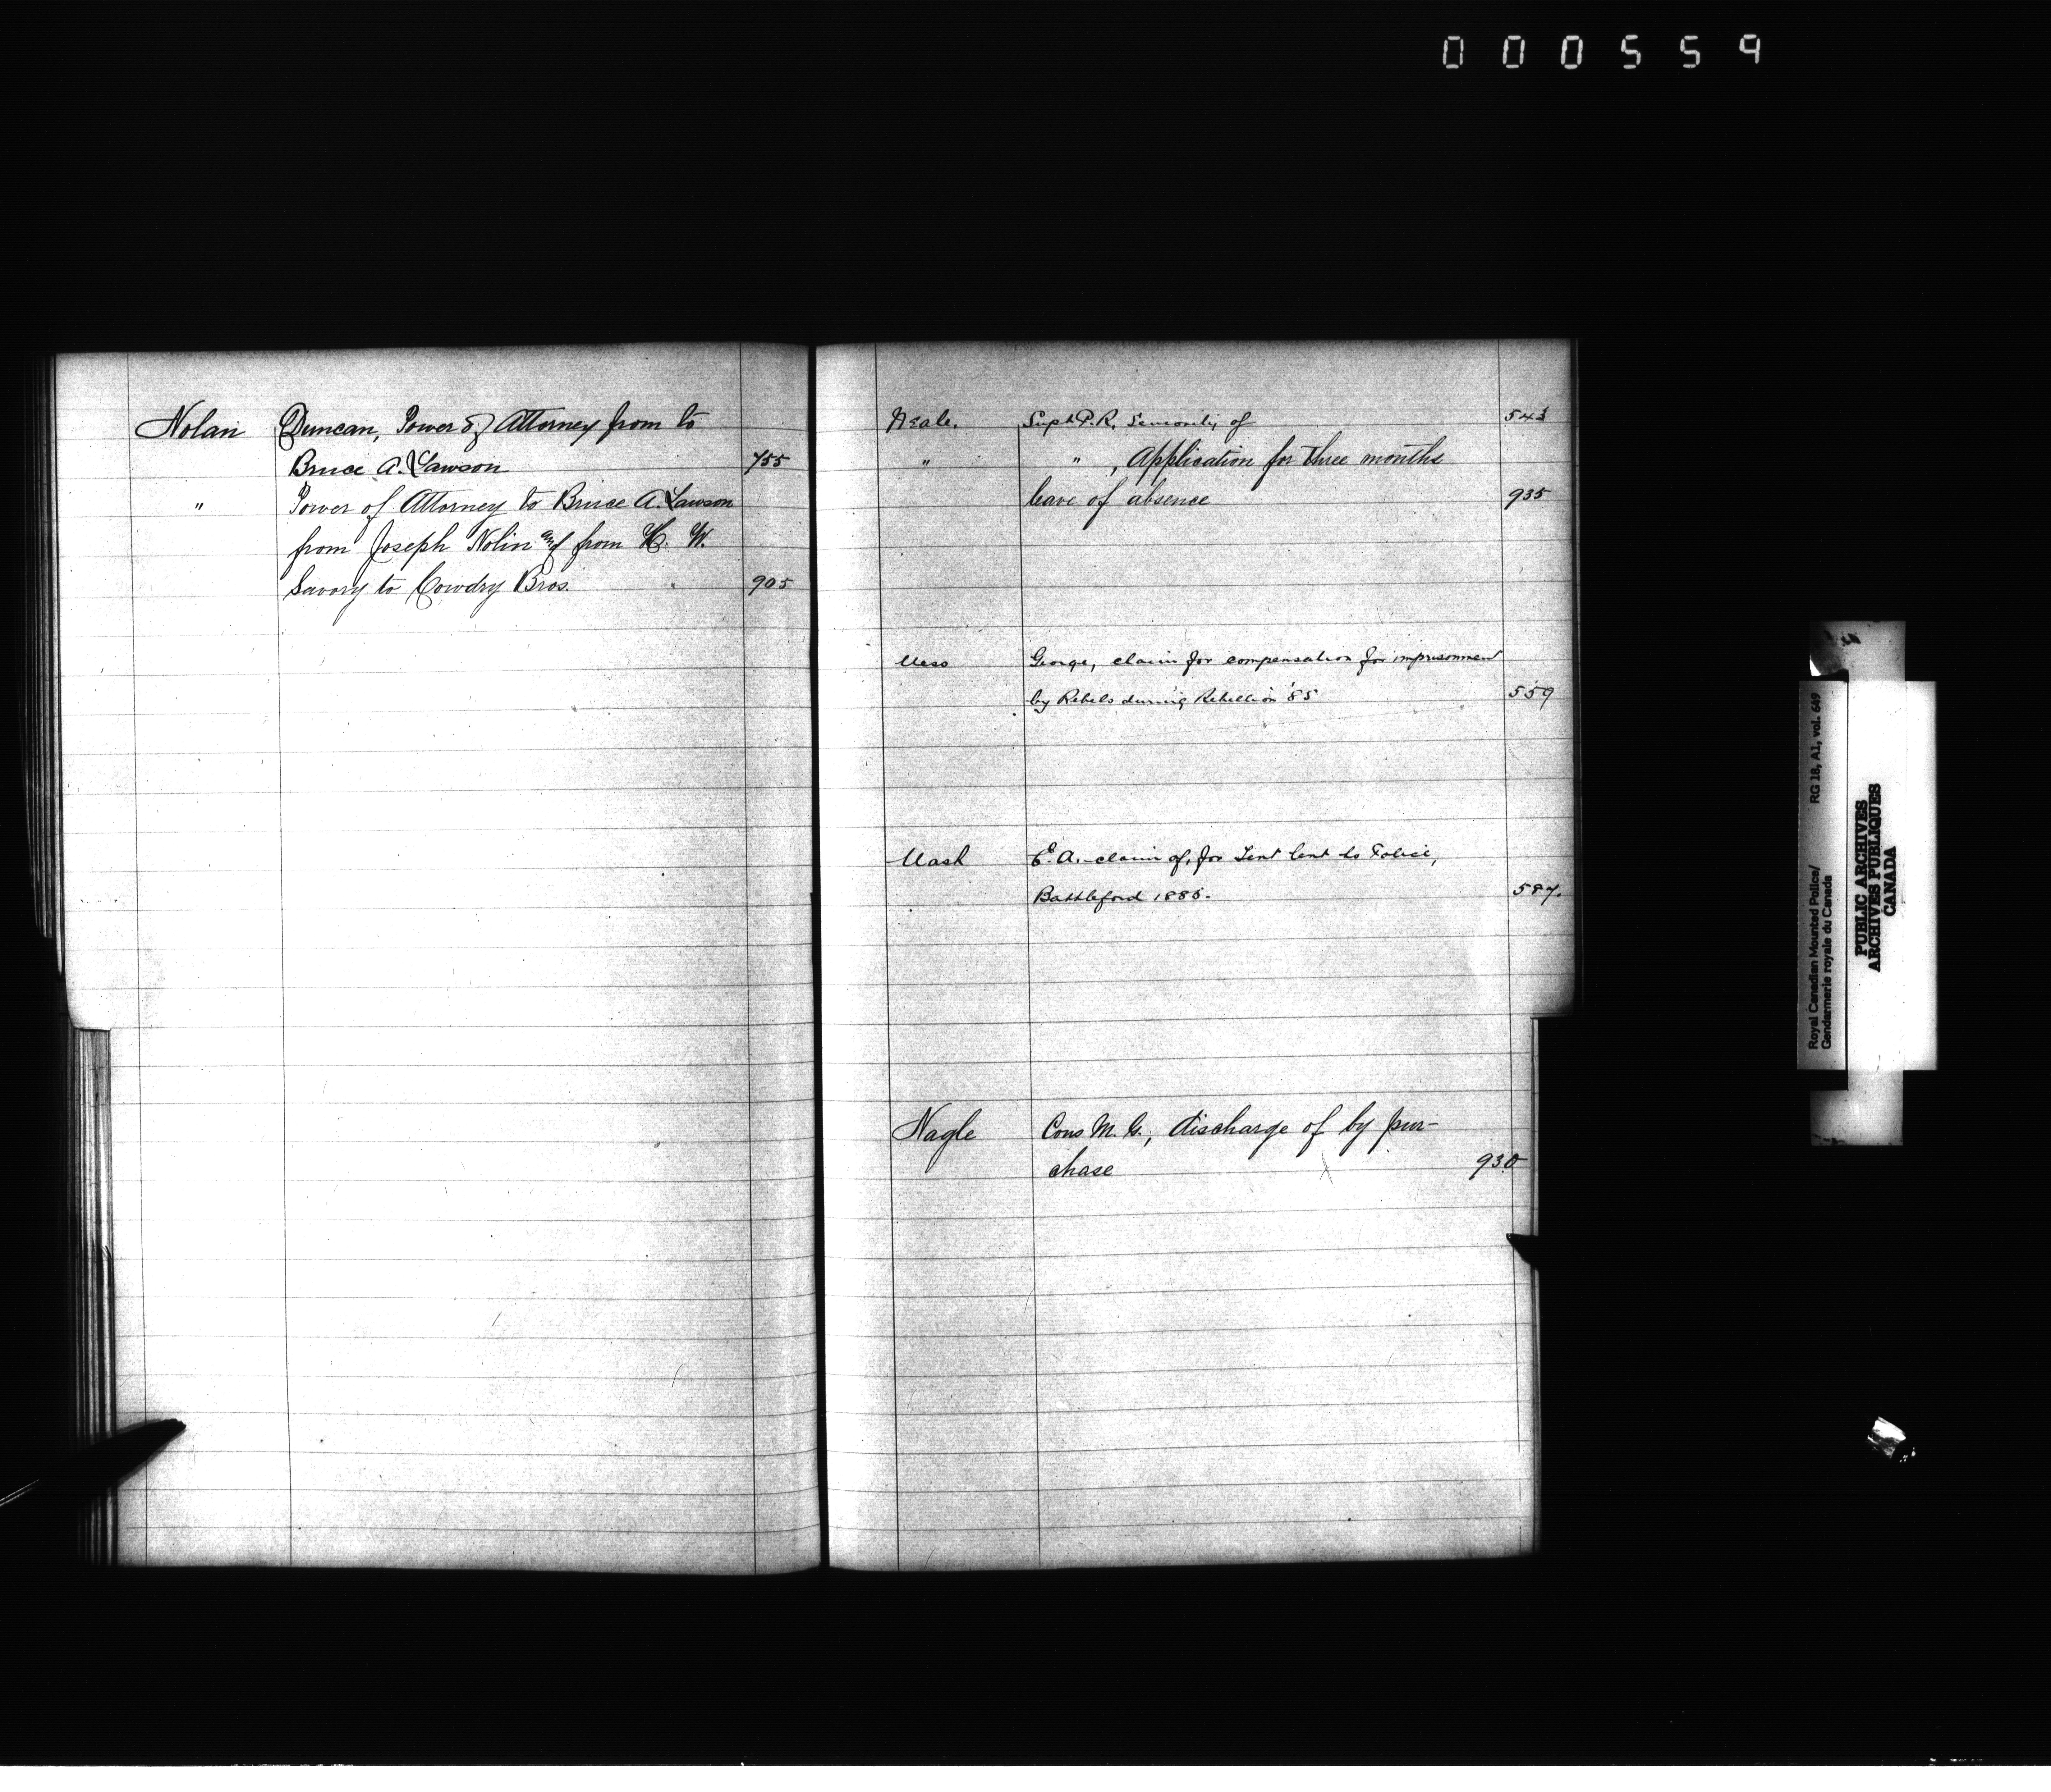 000559
Nolan Duncan, Power of Attorney from to
Bruce A. Lawson 755
" Power of Attorney to Bruce A. Lawson
from Joseph Nolin and from H. W.
Savory to Cowdry Bros. 905
Neale. Supt P. R. Seniority of 543
" " , Application for three months
leave of absence 935
Ness George, claim for compensation for imprisonment
by Rebels during Rebellion '85 559
Nash E. A. claim of, for Tent lent to Police,
Battleford 1885. 587.
Nagle Cons M. G., discharge of by pur-
chase 930
Royal Canadian Mounted Police/ RG 18, A1, vol. 649
Gendarmerie royale du Canada
PUBLIC ARCHIVES
ARCHIVES PUBLIQUES
CANADA